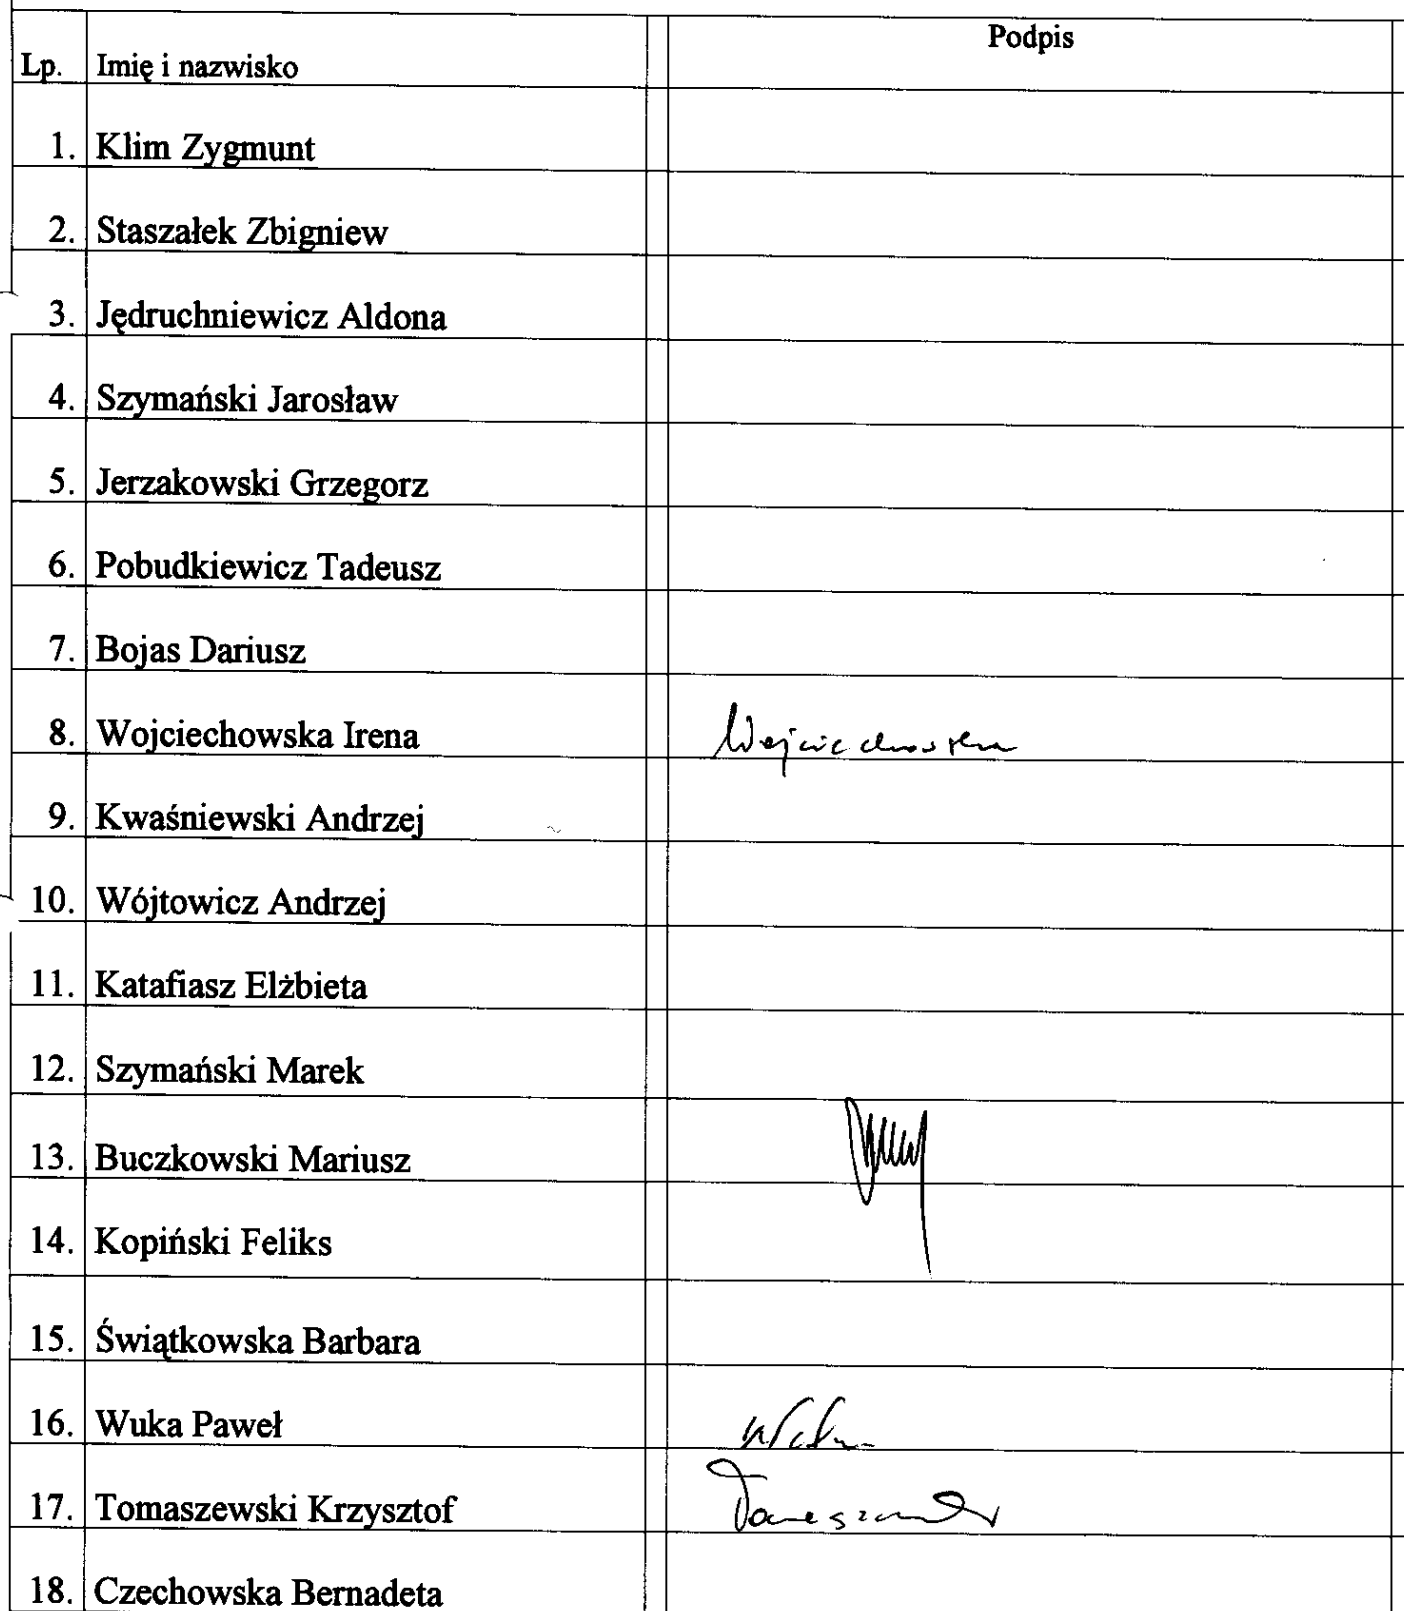 Podpis
Lp. Imię i nazwisko
1. Klim Zygmunt
2. Staszałek Zbigniew
3. Jędruchniewicz Aldona
4. Szymański Jarosław
5. Jerzakowski Grzegorz
6. Pobudkiewicz Tadeusz
7. Bojas Dariusz
8. Wojciechowska Irena Wojciechowska
9. Kwaśniewski Andrzej
10. Wójtowicz Andrzej
11. Katafiasz Elżbieta
12. Szymański Marek
13. Buczkowski Mariusz
14. Kopiński Feliks
15. Świątkowska Barbara
16. Wuka Paweł
17. Tomaszewski Krzysztof
18. Czechowska Bernadeta